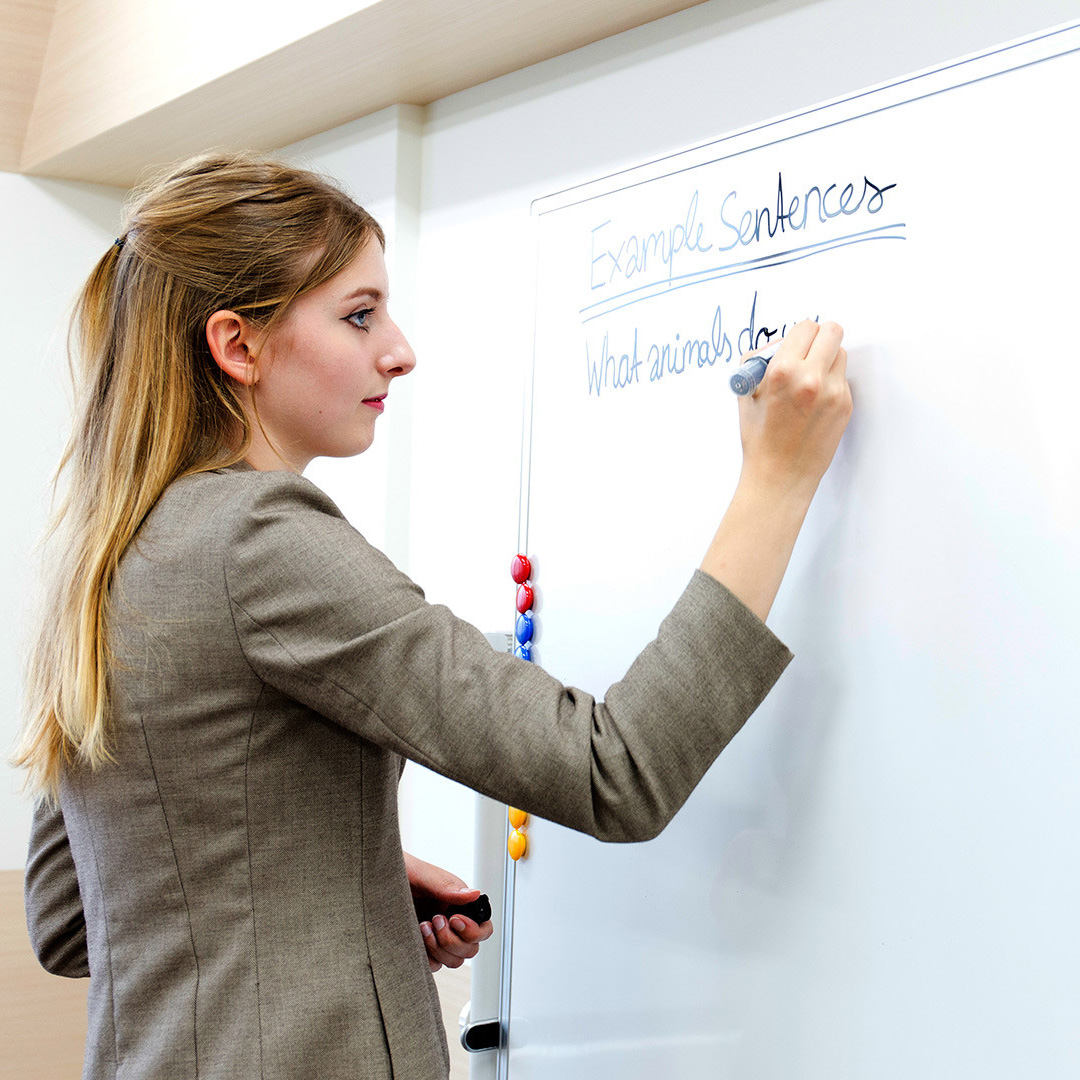 Example Sentences
What animals do